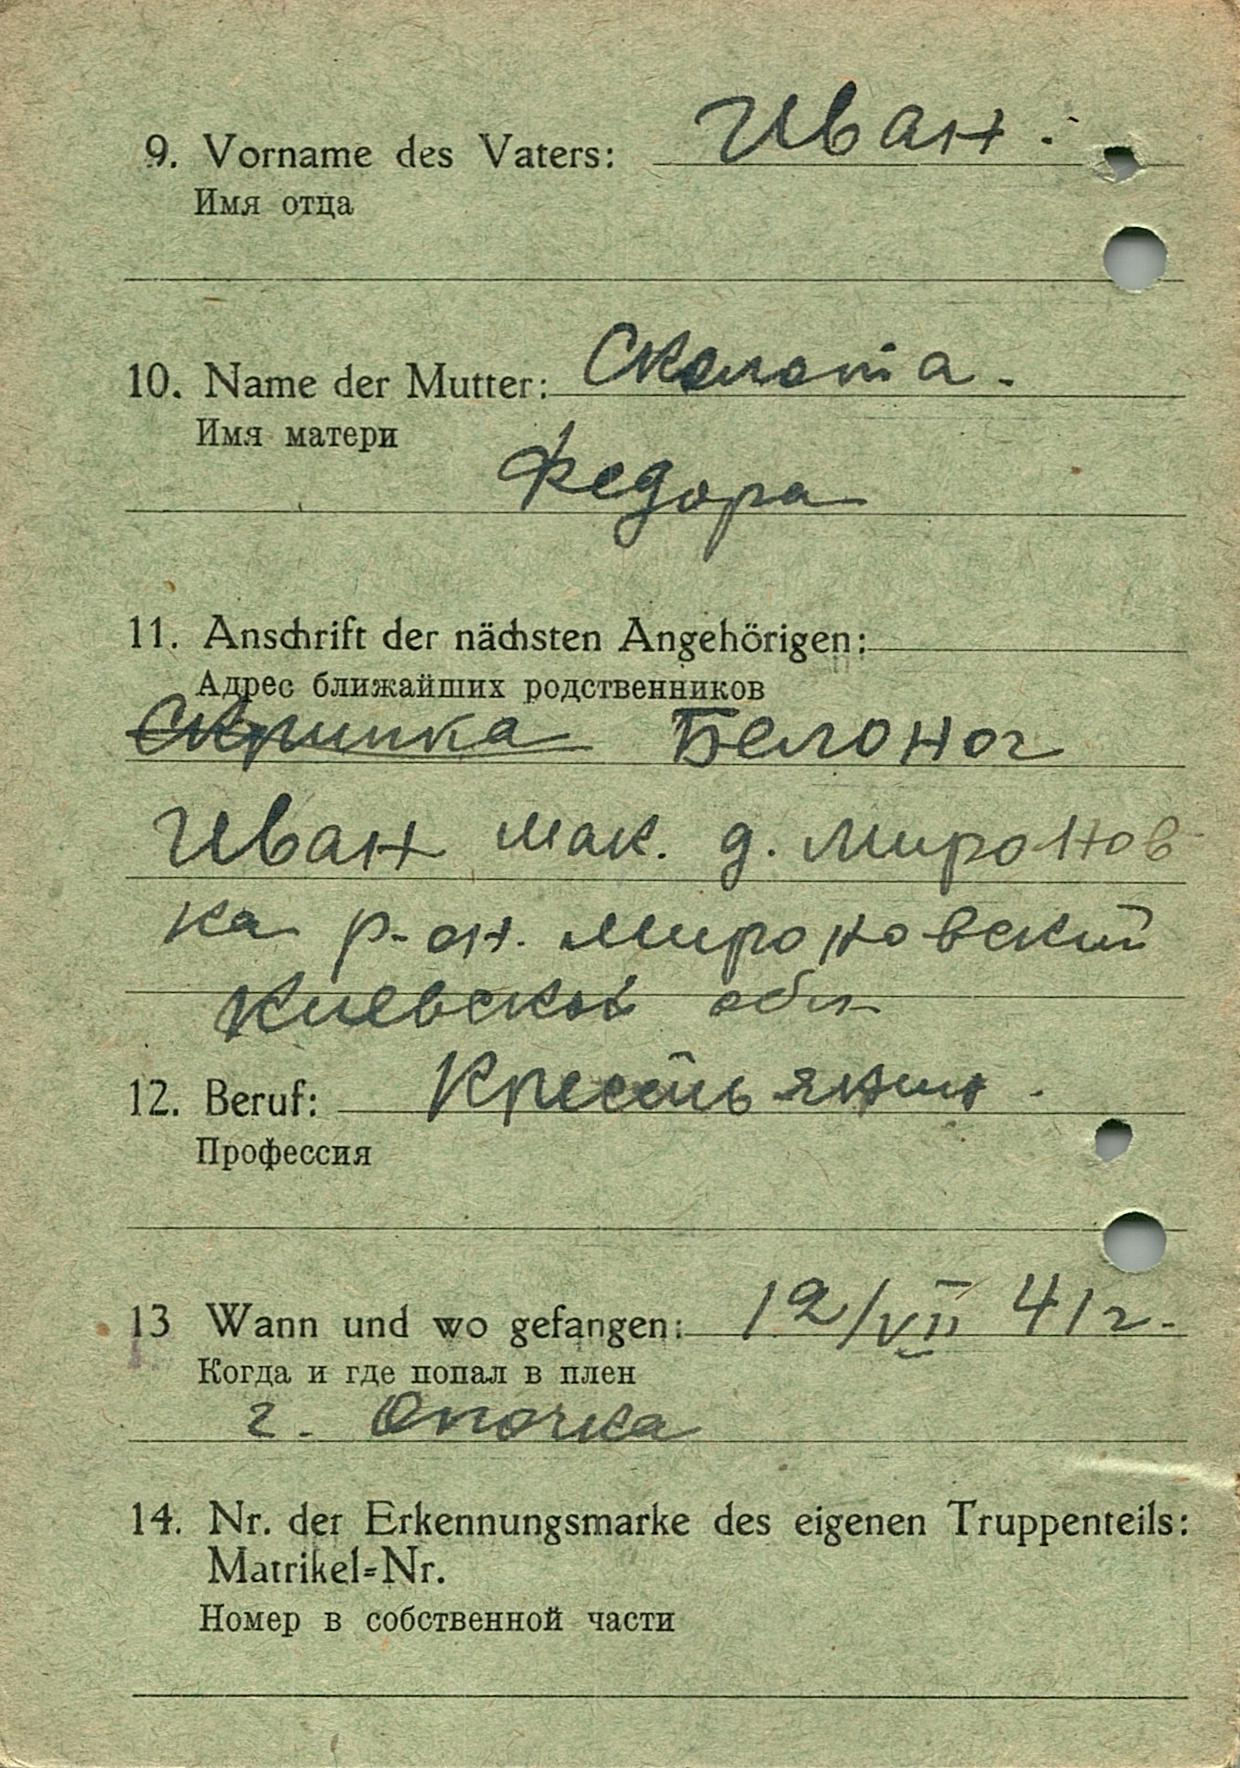 9. Vorname des Vaters: Иван.
Имя отца
10. Name der Mutter: Сколота.
Имя матери
Федора
11. Anschrift der nächsten Angehörigen:
Адрес ближайших родственников
Скрипка Белоног
Иван мак. д. Миронов-
ка р-он. Мироновский
Киевской обл
12. Beruf: Крестьянин.
Профессия
13 Wann und wo gefangen: 12/VII 41г.
Когда и где попал в плен
г. Опочка
14. Nr. der Erkennungsmarke des eigenen Truppenteils:
Matrikel=Nr.
Номер в собственной части